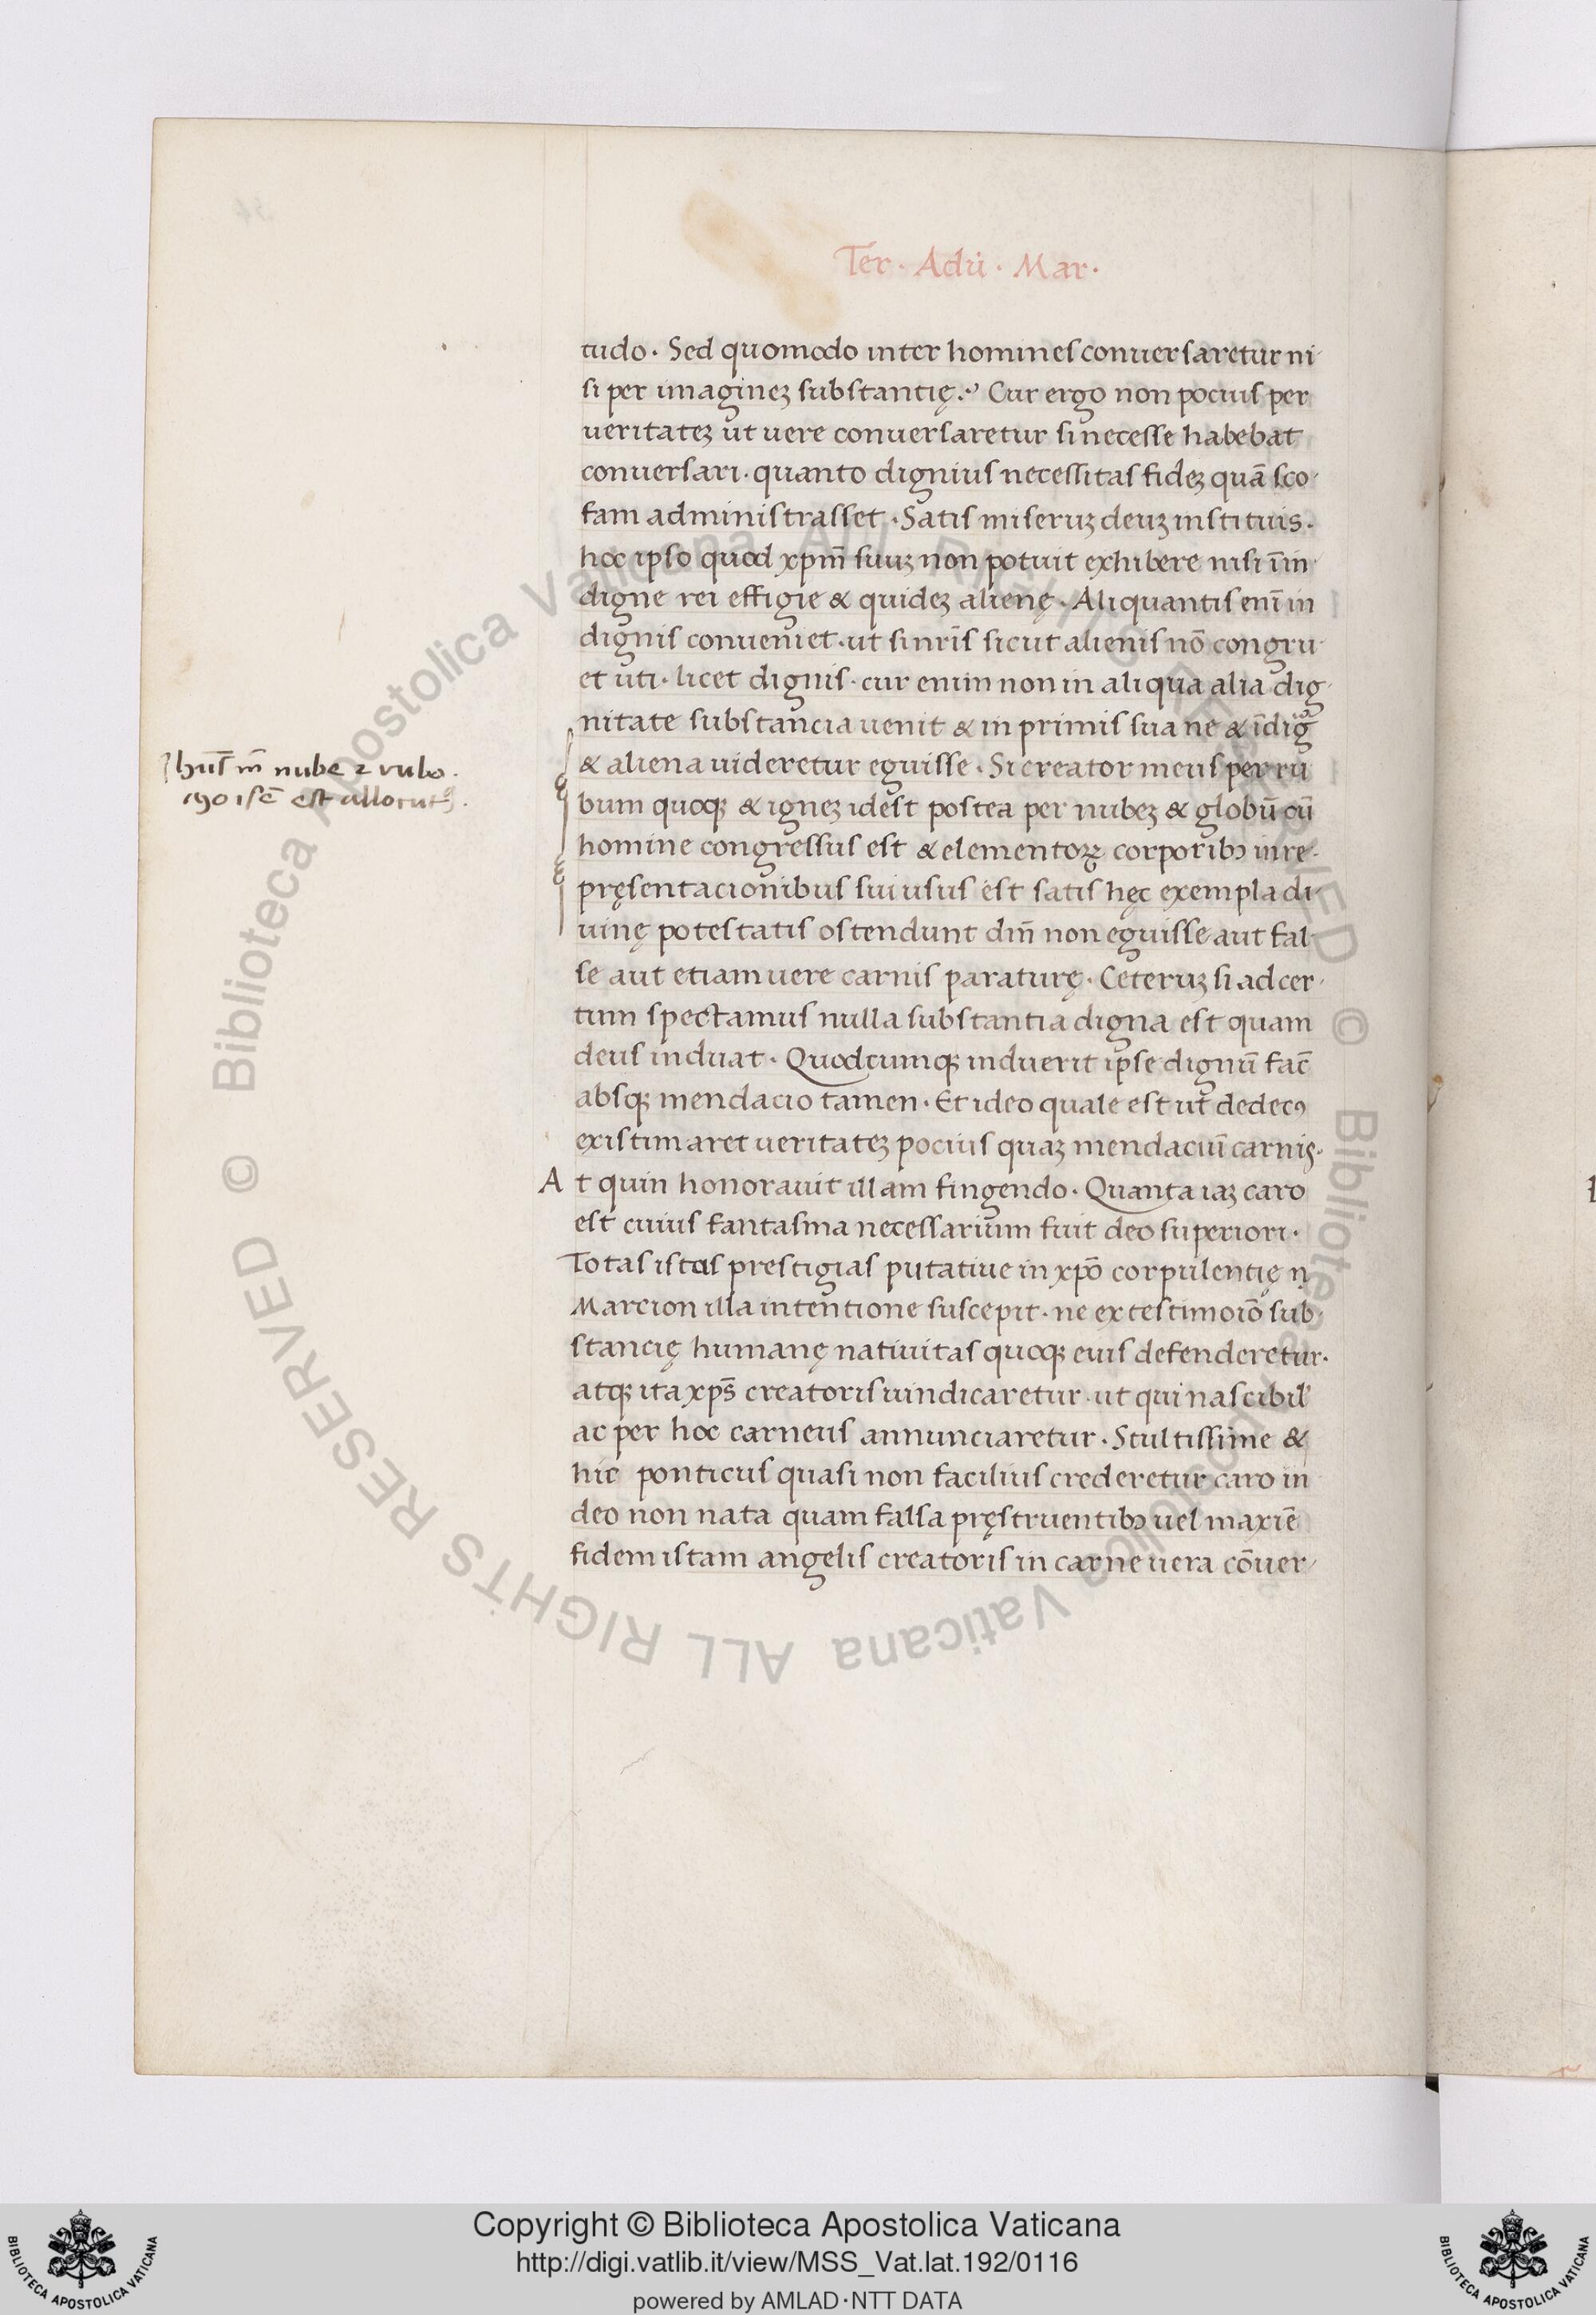 Ter · Adū · Mar ·
tudo · Sed quomodo inter homines conuersaretur ni
si per imagineʒ substantię .ˀ Cur ergo non pocius per
ueritateʒ ut uere conuersaretur si necesse habebat
conuersari · quanto dignius necessitas fideʒ quā sco
fam administrasset · Satis miseruʒ deuʒ instituis ·
hoc ipso quod xpm̄ suuʒ non potuit exhibere nisi ī in
digne rei effigie & quideʒ alienę · Aliquantis enī in
dignis conueniet · ut si nr̄is sicut alienis nō congru
et uti · licet dignis · cur enim non in aliqua alia dig
nitate substancia uenit & in primis sua ne & īdigᵃ
& aliena uideretur eguisse · Si creator meus per ru
bum quoqꝫ & igneʒ idest postea per nubeʒ & globū cū
homine congressus est & elementoꝝ corporibꝫ in re
pręsentacionibus sui usus est satis hęc exempla di
uinę potestatis ostendunt dm̄ non eguisse aut fal
se aut etiam uere carnis paraturę · Ceteruʒ si ad cer
tum spectamus nulla substantia digna est quam
deus induat · Quodcumqꝫ induerit ipse dignū fac̄
absqꝫ mendacio tamen · Et ideo quale est ut dedecꝰ
existimaret ueritateʒ pocius quaʒ mendaciū carnis ·
At quin honorauit illam fingendo · Quanta iaʒ caro
est cuius fantasma necessarium fuit deo superiori ·
Totas istas prestigias putatiue in xpō corpulentię
Marcion illa intentione suscepit · ne ex testimoīo sub
stancię humanę natiuitas quoqꝫ eius defenderetur ·
atqꝫ ita xps̄ creatoris uindicaretur · ut qui nascibil'
ac per hoc carneus annunciaretur · Stultissime &
hic ponticus quasi non facilius crederetur caro in
deo non nata quam falsa pręstruentibꝫ uel maxīe
fidem istam angelis creatoris in carne uera cōuer
nube ⁊ rubo ·
moisē est allocutꝰ ·
Copyright © Biblioteca Apostolica Vaticana
http://digi.vatlib.it/view/MSS_Vat.lat.192/0116
powered by AMLAD·NTT DATA
BIBLIOTECA APOSTOLICA VATICANA
BIBLIOTECA APOSTOLICA VATICANA
© Biblioteca Apostolica Vaticana ALL RIGHTS RESERVED © Biblioteca Apostolica Vaticana ALL RIGHTS RESERVED